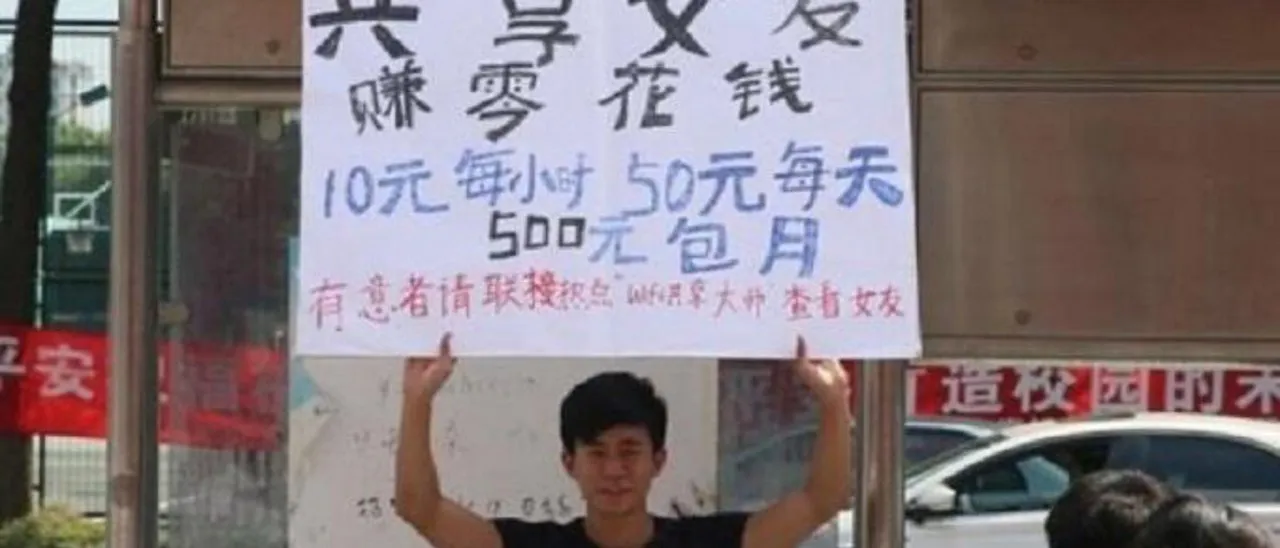 共享女友
赚零花钱
10元每小时 50元每天
500元包月
有意者请联接积点“Wifi共享大师”查看女友
平安
造校园的